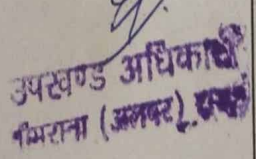 उपखण्ड अधिकारी
नीमराना (अलवर)